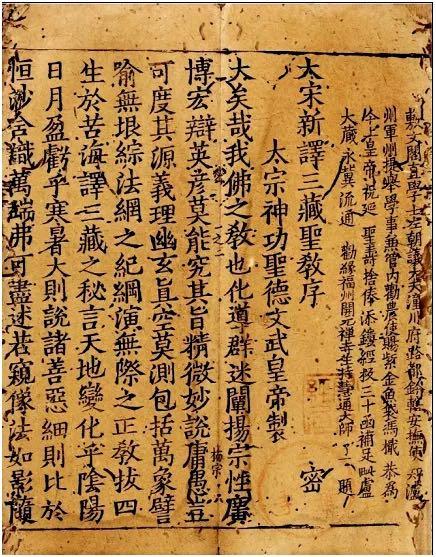 敷文閣直學士左朝議大夫潼川府路都鈐轄安撫使知瀘
州軍州提舉學事兼管内勸農使賜紫金魚袋馮檝 恭為
今上皇帝祝延 聖壽捨俸添鏤經板三十函補足毗盧
大藏永冀流通 勸緣福州開元禪寺住持慧通大師 了一 題
大宋新譯三藏聖教序 密
太宗神功聖德文武皇帝製
大矣哉我佛之教也化導群迷闡揚宗性廣
博宏辯英彥莫能究其旨精微妙說庸愚豈
可度其源義理幽玄真空莫測包括萬象譬
喻無垠綜法網之紀綱演無際之正教拔四
生於苦海譯三藏之秘言天地變化乎陰陽
日月盈虧乎寒暑大則說諸善惡細則比於
恒沙含識萬端弗可盡述若窺像法如影隨